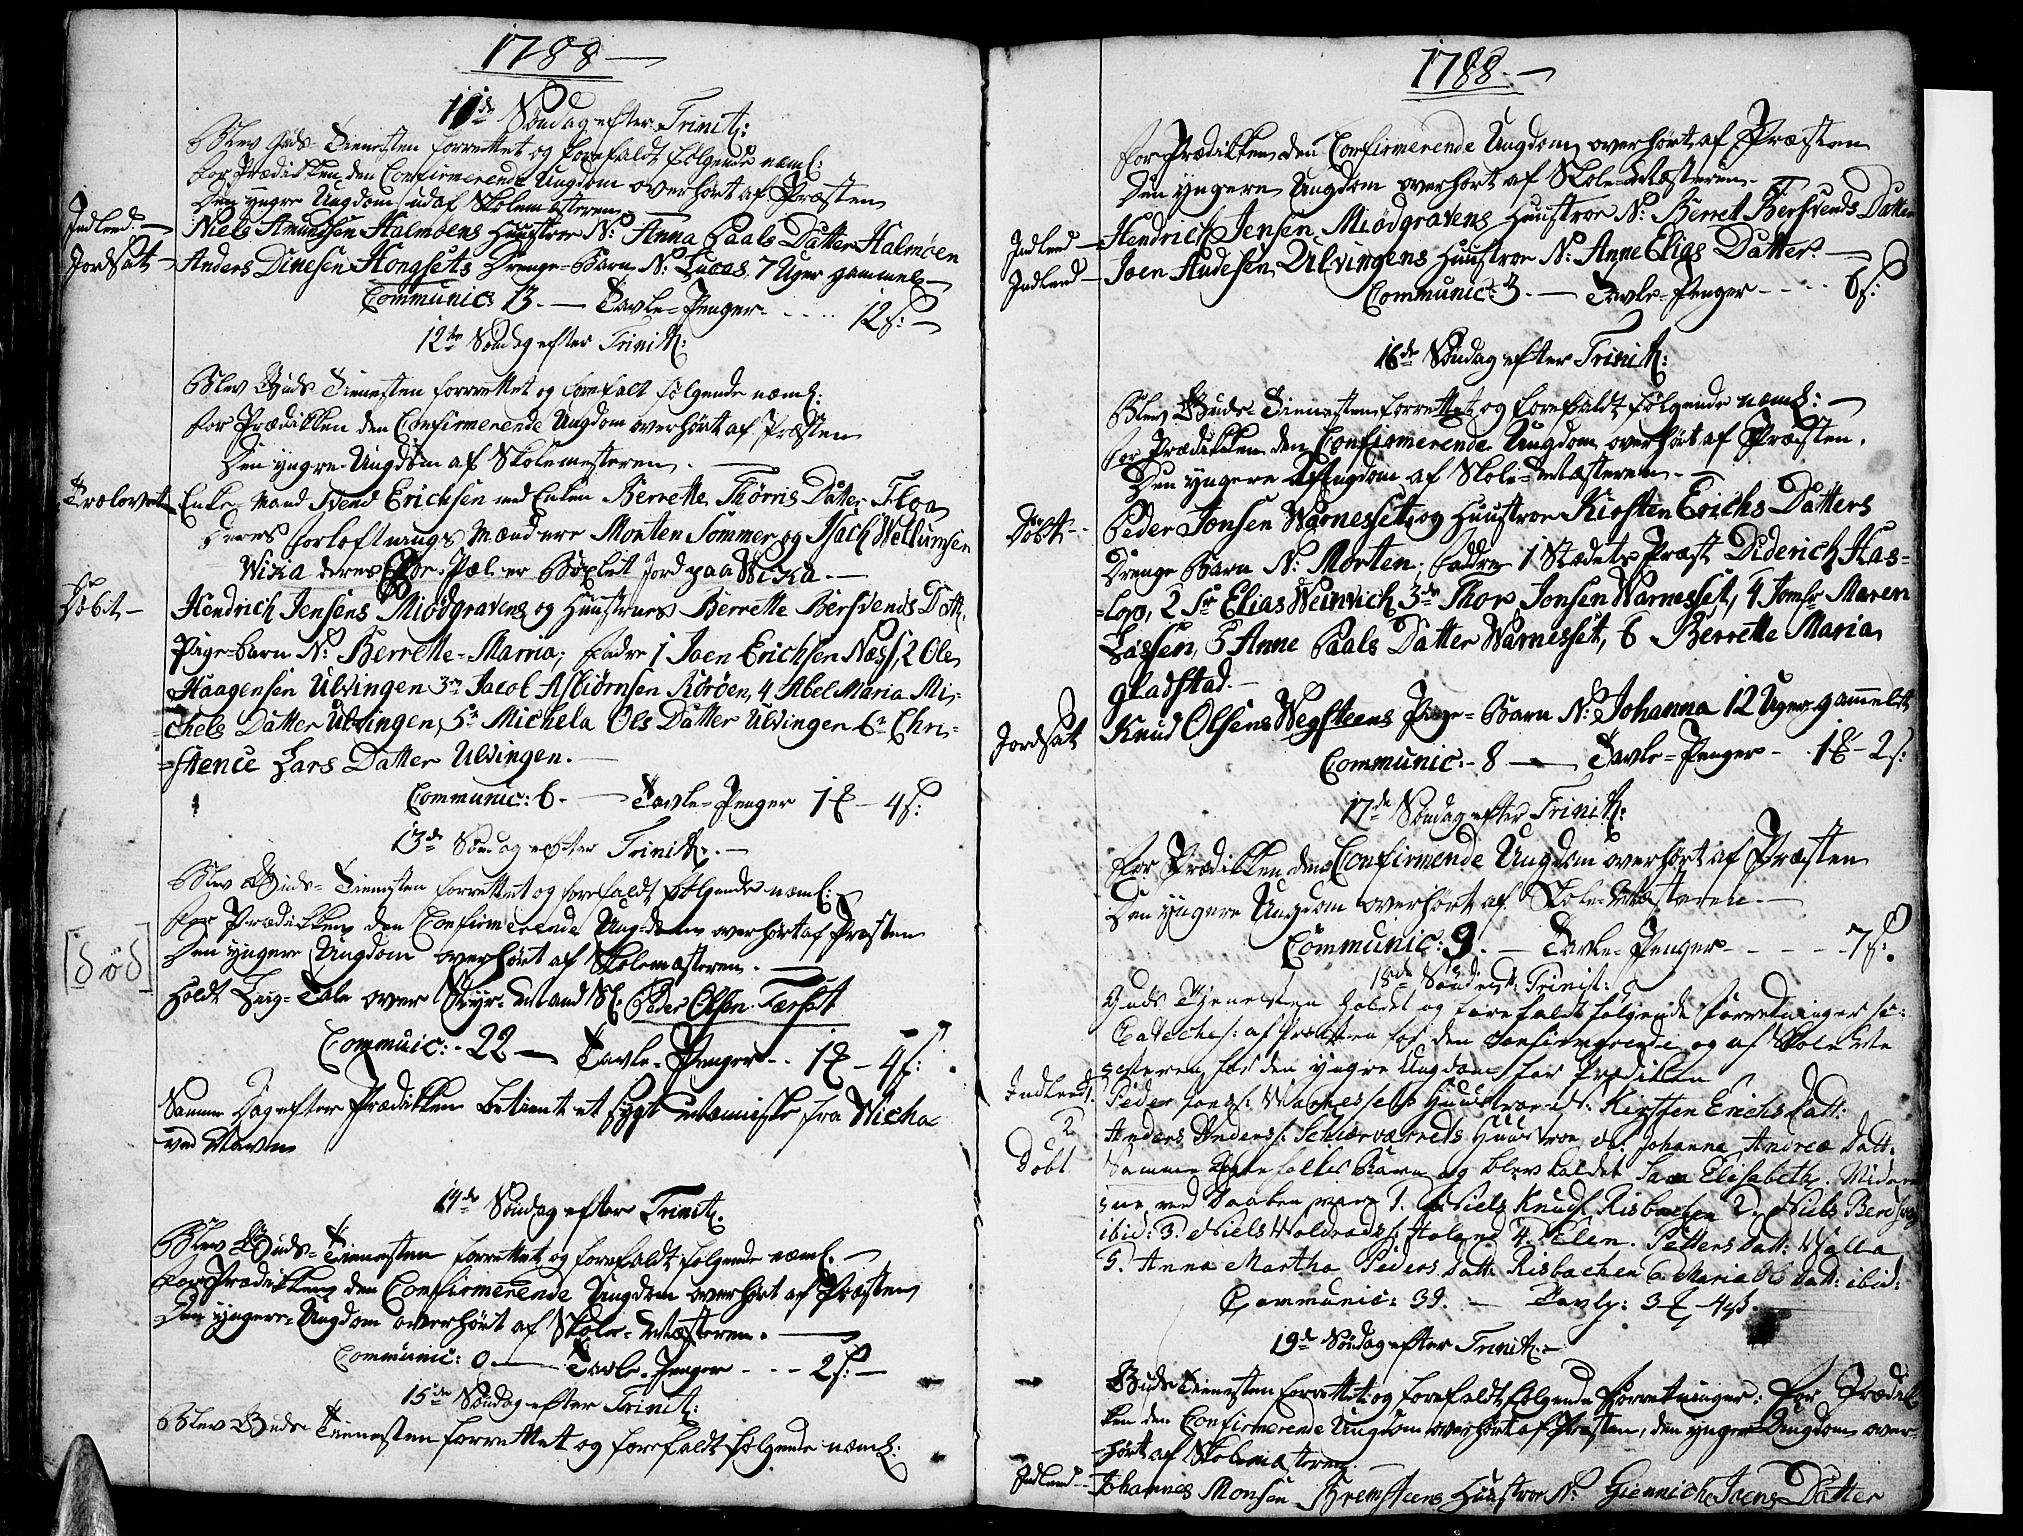 1788
11te Søndag efter Trinit:
Blev Guds Tienesten forrettet og forefaldt følgende næml:
for Prædikken den Confirmerende Ungdom overhørt af Præsten
Den yngre Ungdom udaf Skolemesteren
Indled. Niels Amundsen Halmøens Huustroe N: Anna Paals Datter Halmøen
Jordsat Anders Dinesen Hongsets Drenge-Barn N: Lucas 7 Uger gammel
Communic: 13. Tavle-Penger 12 s:
12te Søndag efter Trinit:
Blev Guds Tienesten forrettet og forefalt følgende næml:
for Prædikken den Confirmerende Ungdom overhørt af Præsten
Den yngre Ungdom af Skolemesteren.
Trolovet Enke-Mand Svend Erichsen med Enken Berrette Thørris Datter Floa
Deres Forlovnings Mænd ere Monten Sommer og Isach Wellumsen
Wika deres
Døbt Hendrich Jensens Miødgravens og Huustrues Berrette Bersvends Datt.
Pige-Barn N: Berrette-Marria; Fadre 1 Joen Erichsen Næss, 2 Ole
Haagensen Ulvingen 3. Jacob Asbiørnsen Rørøen, 4 Abel Maria Mi-
chels Datter Ulvingen, 5. Michela Ols Datter Ulvingen 6. Chri-
stence Lars Datter Ulvingen.
Communic: 6. Tavle-Penger 1 - 4 s:
13de Søndag efter Trinit:
Blev Guds-Tienesten forrettet og forefaldt følgende næml:
for Prædikken den Confirmerende Ungdom overhørt af Præsten
Den yngere Ungdom overhørt af Skolemesteren.
[død] Holdt Liig-Tale over Styr-Mand Sl. Peder Olsen Færset
Commuic: 22 Tavle-Penger 1 - 4 s:
Samme Dag efter Prædikken betient et sygt Menniske fra Wicha
ved Navn
14de Søndag efter Trinit:
Blev Guds-Tienesten forrettet og forefaldt følgende næml:
for Prædikken den Confirmerende Ungdom overhørt af Præsten
Den yngere Ungdom overhørt af Skole-Mesteren.
Communic: 0 Tavle-Penger 2 s:
15de Søndag efter Trinit:
Blev Guds-Tienesten forrettet og forefaldt følgende næml:
1788.
for Prædikken den Confirmerende Ungdom overhørt af Præsten
Den yngere Ungdom overhørt af Skole-Mesteren
Indled Hendrich Jensen Miødgravens Huustroe N: Berret Bersvends Datter
Indled Joen Andesen Ulvingens Huustroe N: Anne Elias Datter.
Communic: 3. Tavle-Penger 6 s:
16de Søndag efter Trinit:
Blev Guds-Tienesten forrettet og forefaldt følgende næml:
for Prædikken den Confirmerende Ungdom overhørt af Præsten.
Den yngere Ungdom af Skole-Mesteren.
Døbt Peder Jonsen Warnesset, og Huustroe Kirsten Erichs Datters
Drenge Barn N: Morten, Faddre 1 Stædets Præst Diderich Has-
lop, 2 Sr Elias Weinvich 3de Thor Jonsen Warnesset, 4 Jomfr Maren
Lassen, 5 Anne Paals Datter Warnesset, 6 Berrette Maria
gladstad.
Jordsat Knud Olsens Wegsteens Pige-Barn N: Johanna 12 Uger gammelt
Communic: 8 Tavle-Penger 1 - 2 s:
17de Søndag efter Trinit:
for Prædikken den Confirmende Ungdom overhørt af Præsten
Den yngere Ungdom overhørt af Skole-Mesteren.
Communic: 9. Tavle-Penger 7 s:
18de Sønd: eft: Trinit:
Guds Tjenesten holdet og forefaldt følgende forretninger
Cateches: af Præsten for den Confirmerende og af Skole Me
steren for den yngre Ungdom for Prædiken
Indledt. Peder Jons: Warnessets Huustroe N: Kirsten Erichs Datt:
2 Anders Anders: Schierværnets Huustroe N: Johanna Andreæ Datt:
Døbt Samme Ægtefolkes Barn og blev kaldet Sara Elisabeth. Vidner
ne ved Daaben vare 1. Niels Knuds: Risbachen 2. Niels
ibid: 3. Niels Woldrads: Holand 4. Elen Petters Datt: Walla
5. Anna Martha Peders Datt: Risbachen 6. Maria Ols Datt: ibid:
Communic: 39. Tavlp: 3 - 4 s.
19de Søndag efter Trinit:
Guds Tienesten forrettet og forefaldt følgende Forretninger: for Prædik
ken den Confirmerende Ungdom overhørt af Præsten, den yngre Ungdom over-
hørt af Skolemesteren.
Indled Johannes Monsen Bremsteens Huustroe N: Giennich Joens Datter